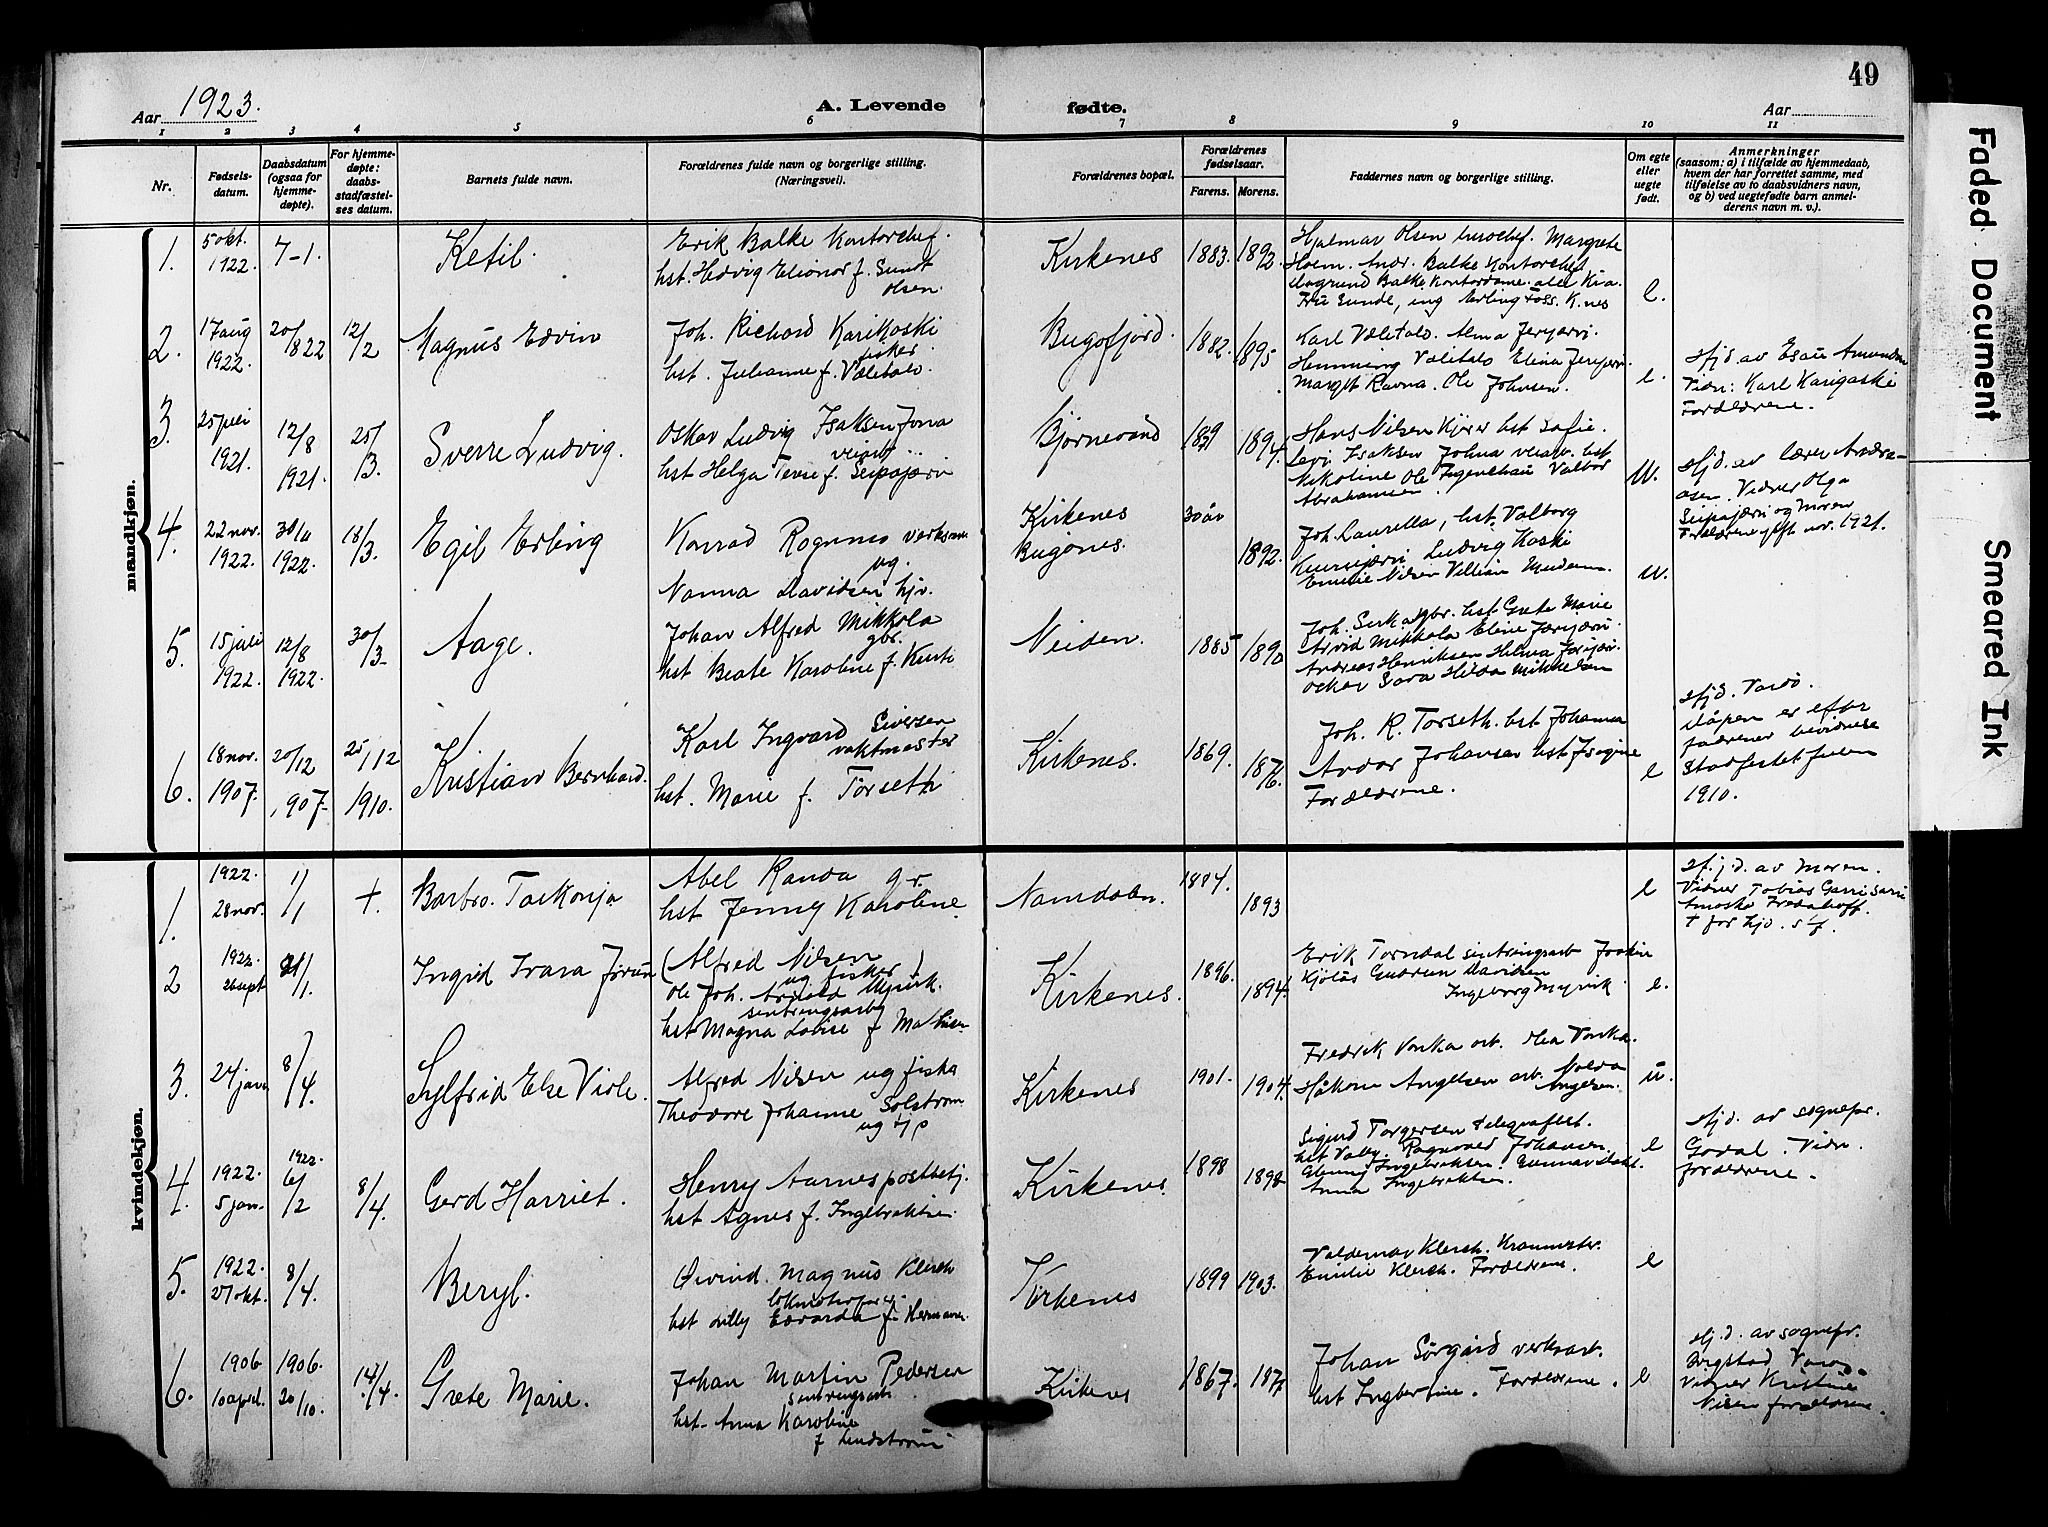 49
Aar 1923.
A. Levende fødte.
Aar
1 2 3 4 5 6 7 8 9 10 11
Nr.
Fødsels-
datum.
Daabsdatum
(ogsaa for
hjemme-
døpte).
For hjemme-
døpte:
daabs-
stadfæstel-
ses datum.
Barnets fulde navn.
Forældrenes fulde navn og borgerlige stilling.
(Næringsvei).
Forældrenes bopæl.
Forældrenes
fødselsaar.
Farens. Morens.
Faddernes navn og borgerlige stilling.
Om egte
eller
uegte
født.
Anmerkninger
(saasom: a) i tilfælde av hjemmedaab,
hvem der har forrettet samme, med
tilføielse av to daabsvidners navn,
og b) ved uegtefødte barn anmel-
derens navn m. v.).
mandkjøn.
1.
5 okt.
1922.
7-1.
Ketil.
Erik Balke Kontorchef.
hst. Hedvig Elionor f. Sundt
Olsen.
Kirkenes
1883. 1892.
Hjalmar Olsen Margrete
Holm. Andr. Balke Kontorchef
Balke Kontordame.
Fru Sunde, ing Erling Foss. K.nes
e.
2.
17 aug
1922.
20/8 22
12/2
Magnus Edvin
Joh. Richard Karikoski
fisker
hst. Julianne f. Välitalo.
Bugøfjord.
1882. 1895
Karl Välitalo. Alma Jerijervi.
Henning Välitalo Elina Jerijervi
Marget Ravna. Ole Johnsen.
e.
Hjd. av Esau Amundsen
Vidn: Karl Karigaski
Forældrene.
3.
25 juli
1921.
12/8
1921.
25/3.
Sverre Ludvig.
Oskar Ludvig Isaksen Jona
hst Helga Tevie f. Seipäjärvi
Bjørnevand
1894.
Hans Nilsen Kjører hst Sofie.
Levi Isaksen Johna hst
Nikoline Ole Ingenthau Valbor
Abrahamsen.
u.
Hjd. av lærer Andrea-
sen. Vidner Olga
Seipäjärvi og Moren
Forældrene gift nov. 1921.
4.
22 nov.
1922.
30/11
1922.
18/3.
Egil Erling
Konrad Rognmo
ug.
Nanna Davidsen hjv.
Kirkenes
Bugønes.
30 år
1892.
Joh. Laurilla, hst. Valborg
Ludvig Koski
Emilie Nilsen Villiam
u.
5.
15 juli
1922.
12/8
1922.
30/3-
Aage.
Johan Alfred Mikkola
gbr.
hst Beate Karoline f. Kurti
Neiden.
1885 1890
Joh. Sirka gbr. hst Grete Marie
Arvid Mikkola Eline Jerijervi
Andreas Henriksen Helma Jerijervi
Oskar Sara Hilda Mikkelsen
6.
18 nov.
1907.
20/12
1907-
25/12
1910.
Kristian Bernhard.
Karl Ingvard Sivertsen
vaktmester
hst. Marie f. Torseth
Kirkenes.
1869. 1876.
Joh. R. Torseth. hst Johanna
Andor Johansen hst
Forældrene.
e
Hjd. Vardø.
Dåpen er efter
faderens
stadfestet julen
1910.
kvindekjøn.
1.
1922.
28 nov.
1/1
+.
Barbro. Taikonja
Abel Randa gr.
hst Jenny Karoline.
Namdalen.
1884. 1893
e
Hjd. av Moren.
Vidner Tobias
+ før hjd. s/f.
2
1922.
26 sept
21/1.
Ingrid Ivara Jorun
(Alfred Nilsen
ug fisker)
Ole Joh. Arnold Myrvik.
sintringsarb
hst Magna Lovise f Mathisen
Kirkenes.
1896. 1894.
Erik Torndal sintringsarb
Kjølås Gudrun Davidsen
Ingeborg Myrvik
e.
3.
24 jan
8/4.
Sylfrid Else Viole.
Alfred Nilsen ug fisker
Theodore Johanne Solstrøm
ug tjp
Kirkenes
1901. 1904.
Fredrik Vonka arb. Olea Vonka.
Håkon Angelsen arb.
Angelsen.
u.
4.
1922.
5 jan.
1922.
6/2
8/4.
Gerd Harriet.
Henry Aarnes postbetj.
hst Agnes f. Ingebrektsen
Kirkenes
1898 1898
Sigurd Torgersen telegrafbest.
hst Valby. Ragnvald Johansen.
Ingebriktsen. Gunnar Dahl.
Anna Ingebriktsen.
e
Hjd. av sognepr.
Godal. Vidn.
forældrene.
5.
1922.
27 okt.
8/4.
Beryl.
Øivind. Magnus Klerck
lokmotorfører.
hst Lilly Edvarda f. Hermann.
Kirkenes
1899 1903.
Valdemar Klerck.
Emilie Klerck. Forældrene.
e
6.
1906
10 april.
1906.
20/10.
14/4.
Grete Marie.
Johan Martin Pedersen
sintringsarb
hst. Anna Karoline
f Lindstrøm
Kirkenes
1867. 187
Johan Sørgård verksarb.
hst Ingbertine. Forældrene.
e
Hj.d. av sognepr.
Bergstad Vardø
Vidner Kristine
Nilsen forældrene.
Faded Document
Smeared Ink